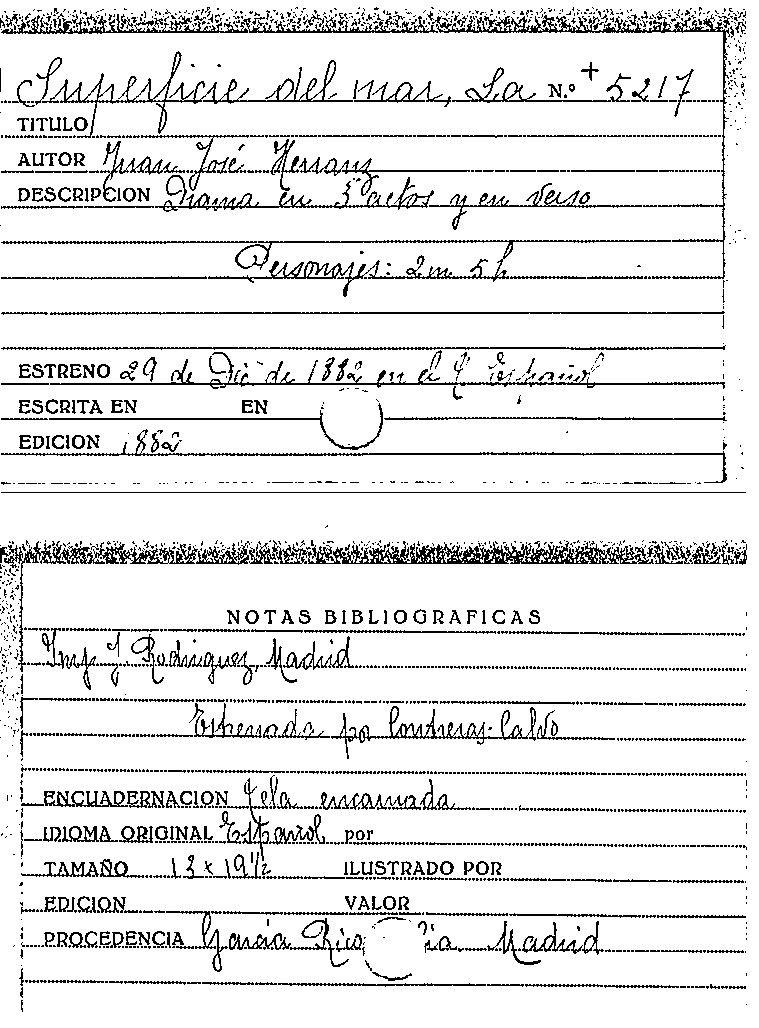 Superficie del mar, La N.º + 5217
TITULO
AUTOR Juan José Herranz
DESCRIPCION Drama en 3 actos y en verso
Personajes: 2m 5h
ESTRENO 29 de Dic de 1882 en el T. Español
ESCRITA EN EN
EDICION 1882
NOTAS BIBLIOGRAFICAS
Imp. J. Rodriguez, Madrid
Estrenada por Contreras-Calvo
ENCUADERNACION Tela encarnada
IDIOMA ORIGINAL Español por
TAMAÑO 13 x 19 1/2 ILUSTRADO POR
EDICION VALOR
PROCEDENCIA García Rico Madrid